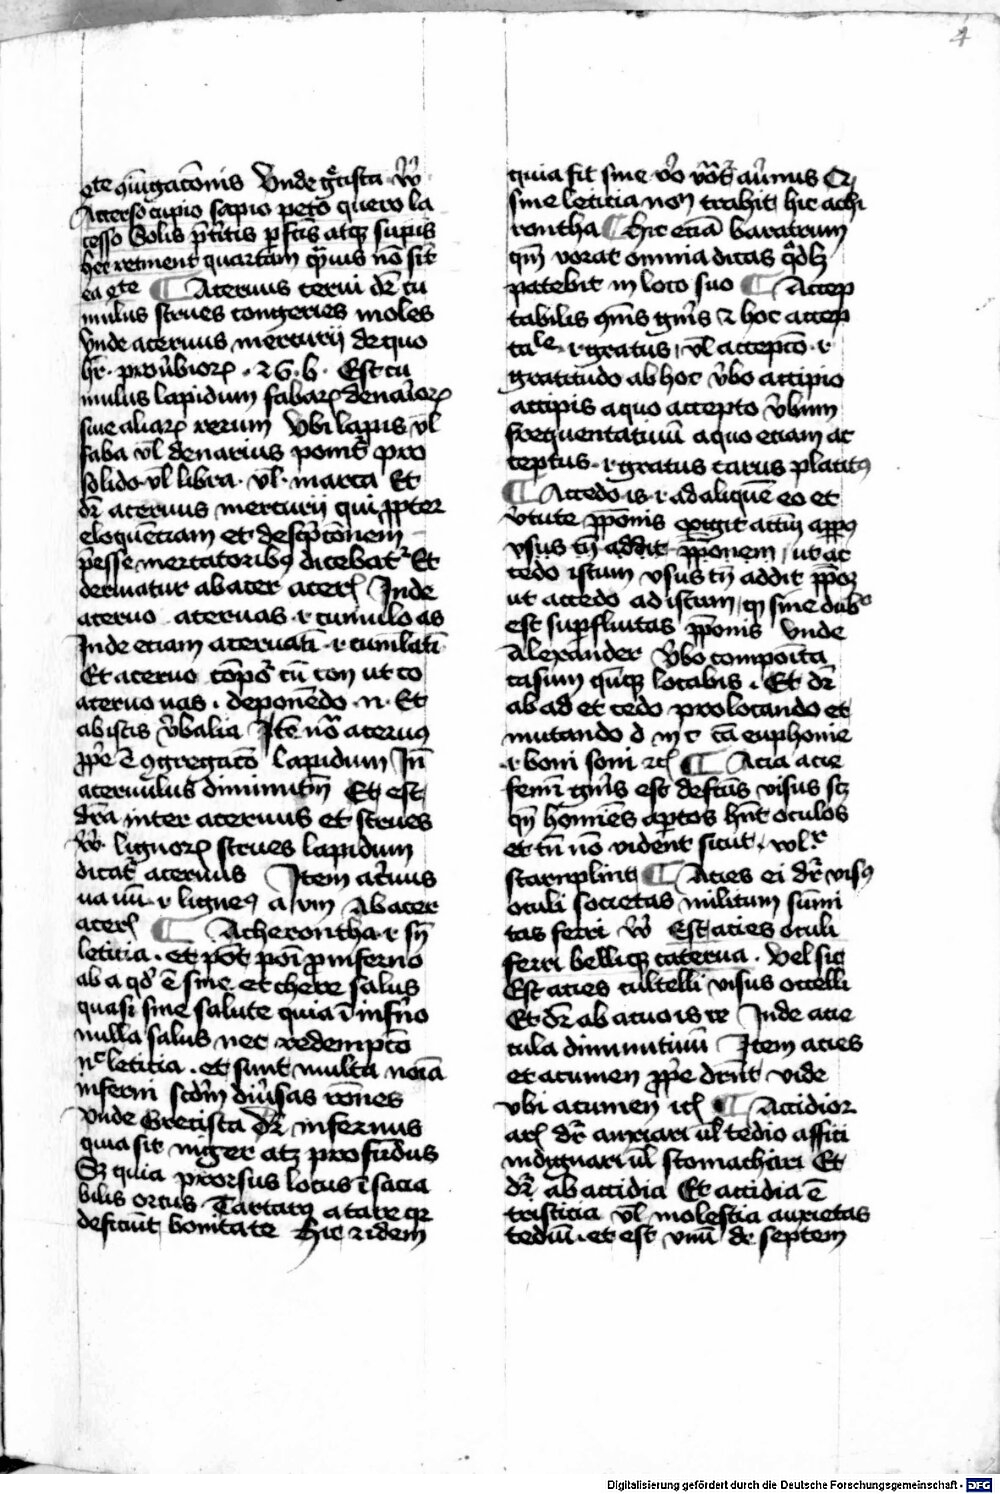 4
qͣte ɔiugac̄onis Vnde gͣcista v̄
Accerso cupio sapio peto quero la
cesso Solis p̄titis p̄fc̄is atq; supīs
Hec retinent quartam qͣuis nō sit
ea qͣte ¶ Aceruus cerui dr̄ cu
mulus strues congeries moles
vnde aceruus mercurij de quo
hr̄ prou̾biorꝝ 26 b Est cu
mulus lapidum fabarꝝ denariorꝝ
siue aliarꝝ rerum Vbi lapis vl̄
faba vl̄ denarius ponit̄ pro
solido vl̄ libra vl̄ marca Et
dr̄ aceruus mercurij qui ꝓpter
eloquēciam et descp̄cōnem
p̄esse mercatoribꝰ dicebatᷣ Et
deriuatur ab acer acerꝭ Inde
aceruo aceruas .i. cumulo as
Inde eciam aceruatī .i. cumlatī
Et aceruo cōpoᷣ cū con ut co
aceruo uas deponēdo n Et
ab istis v̾balia Itē nō aceruꝰ
ꝓp̄e ē ɔgregac̄o lapidum Iñ
aceruulus diminutm̄ Et est
dr̄a inter aceruus et strues
v̄ lignorꝝ strues lapidum
dicatᷣ aceruus Item ac̾uus
ua uū .i. ligneꝰ a um Ab acer
acerꝭ ¶ Acherontha .i. sn̄
leticia et pōt poni ꝓ inferno
ab a qd̾ ē sine et chere salus
quasi sine salute quia ī infn̾o
nulla salus nec redempc̄o
nͨ leticia et sunt multa noīa
inferni scd̾m diu̾sas rōnes
vnde Grecista dr̄ infernus
quia sit niger atꝫ profūdus
Sꝫ quia prorsus locus ē sacia
bilis orcus Tartarꝰ a tare qr
deficiūt bonitate Hic idem
quia fit sine v̾o vōt̄ au̾nus Et
sine leticia non trahit hic achi
rontha ¶ Hic eciā baratrum
qm̄ vorat omnia dicas qd̾lꝫ
patebit in loco suo ¶ Accep
tabilis om̄is gn̾is 2 hoc accep
taˡᵉ .i. gratus vl̄ accepto .i.
gratitudo ab hoc v̾bo accipio
accipis a quo accepto v̾bum
frequentatiuū a quo eciam ac
ceptus .i. gratus carus placitꝰ
¶ Accedo is .i. ad aliquē eo et
v̾tute ꝓpōnis exigit actm̄ app̄ꝰ
vsus tn̄ addit ꝓpōnem ut ac
cedo istum vsus tn̄ addit ꝓpoꝫ
ut accedo ad istum qꝫ sine dubᵒ
est supfluitas ꝓpōnis Vnde
Alexander v̾bo compoīta
casum qūqꝫ locabis Et dr̄
ab ad et cedo pro locando et
mutando d in c cā euphonie
.i. boni soni ⁊cꝭ ¶ Acia acie
femī gn̾is est defcūs visus scꝫ
qn̄ homīes aptos hn̄t oculos
et tn̄ nō vident sicut wlͬ
starnplint ¶ Acies ei dr̄ visꝰ
oculi societas militum sūmi
tas ferri v̄ Est acies oculi
ferri belliqꝫ caterua Vel sic
Est acies cultelli visus occelli
Et dr̄ ab acuo is re Inde acie
cula diminutiuū Item acies
et acumen ꝓp̄e drn̄t vide
vbi acumen ⁊cꝭ ¶ Accidior
arꝭ dr̄ anxiari vl̄ tedio affici
indignari vl̄ stomachari Et
dr̄ ab accidia Et accidia ē
tristicia vl̄ molestia anxietas
tediū et est vnū de septem
Digitalisierung gefördert durch die Deutsche Forschungsgemeinschaft - DFG